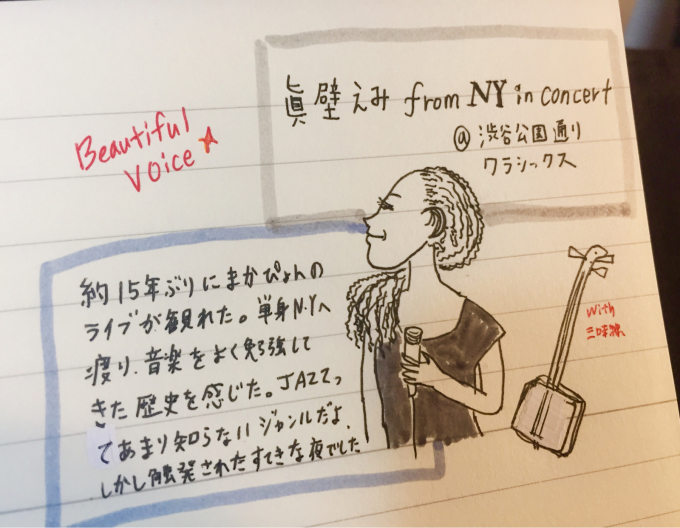 眞壁えみ from NY in concert
@ 渋谷公園通り
クラシックス
Beautiful
Voice
約15年ぶりにまかぴょんの
ライブが観れた。単身N.Yへ
渡り、音楽をよく勉強して
きた歴史を感じた。JAZZっ
てあまり知らないジャンルだよ、
しかし触発されたすてきな夜でした
With
三味線